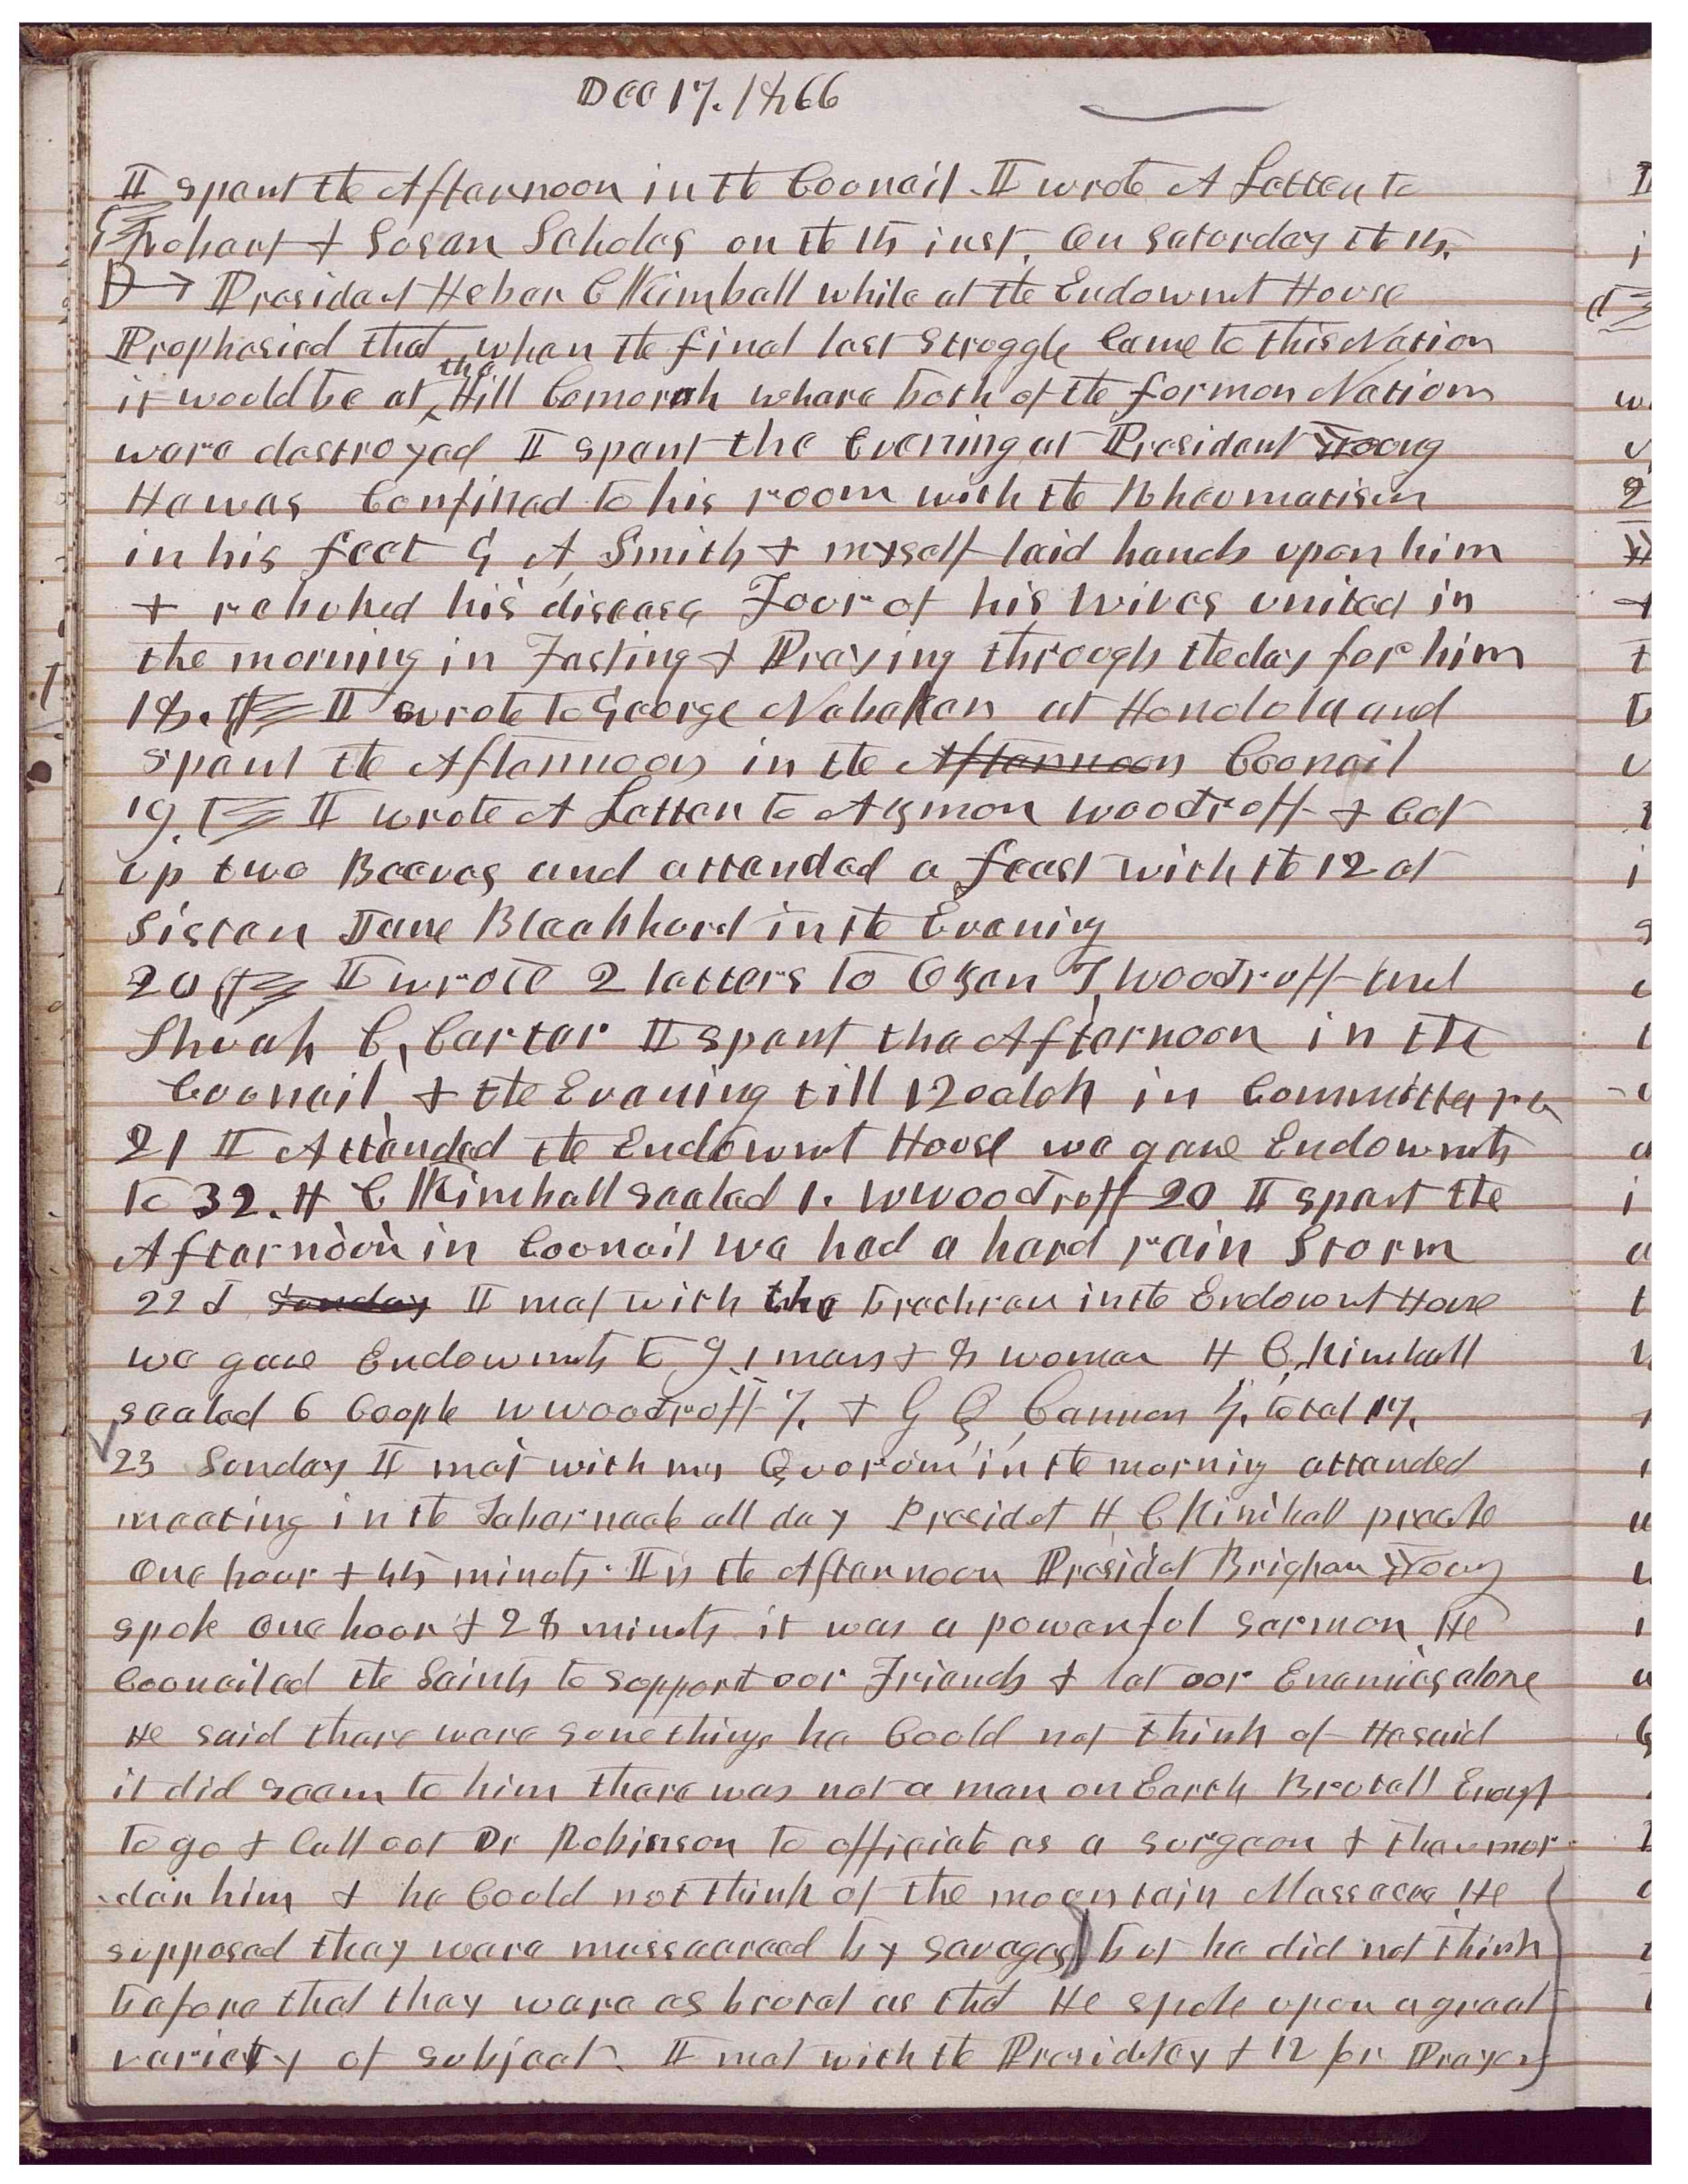 Dec 17. 1866
I spent the Afternoon in the Councail. I wrote A Letter to
Robart & Susan Scholes on the 15 inst. On Saturday the 15.
President Heber C Kimball while at the Endowmt House
Prophesied that when the final last struggle Came to this Nation
it would be at the Hill Comorah where both of the former Nations
were destroyed I spent the Evening at President Young
He was Confined to his room with the Rheumatism
in his feet G A Smith & myself laid hands upon him
& rebuked his disease Four of his wives united in
the morning in Fasting & Praying through the day for him
18. I wrote to George Nebeker at Honolola and
spent the Afternoon in the Afternoon Councail
19. I wrote A Letter to Azmon Woodruff & Cut
up two Beeves and attended a feast with the 12 at
Sister Jane Blackhurd in the Evening
20 I wrote 2 letters to Ozem T Woodruff and
Shuah C. Carter I spent the Afternoon in the
Councail & the Evening till 12 oclok in Committe
21 I Attended the Endowmt House we gave Endowmts
to 32. H C Kimball sealed 1. W Woodruff 20 I spent the
Afternoon in Councail we had a hard rain Storm
22d Sunday I met with the brethren in the Endowmt House
we gave Endowmts to 9. 1 man & 8 women H C. Kimball
sealed 6 Couple W Woodruff 7. & G Q Cannon 4. total 17.
23 Sunday I met with my Quorum in the morning attended
meeting in the Tabernacle all day Presidet H C Kimball preache
One hour & 45 minuts. In the Afternoon Presidet Brigham Young
spoke One hour & 28 minuts it was a powerful sermon He
Councailed the Saints to support our Friends & let our Enemies alone
He said there were some things he Could not think of He said
it did seem to him there was not a man on Earth Brutall Enough
to go & Call out Dr Robinson to officiate as a surgeon & then mur
-der him & he Could not think of the mountain Massacre He
supposed they were massacreed by savages but he did not think
before that they were as brutal as that He spoke upon a great
variety of subject. I met with the Presidtcy & 12 for Prayer